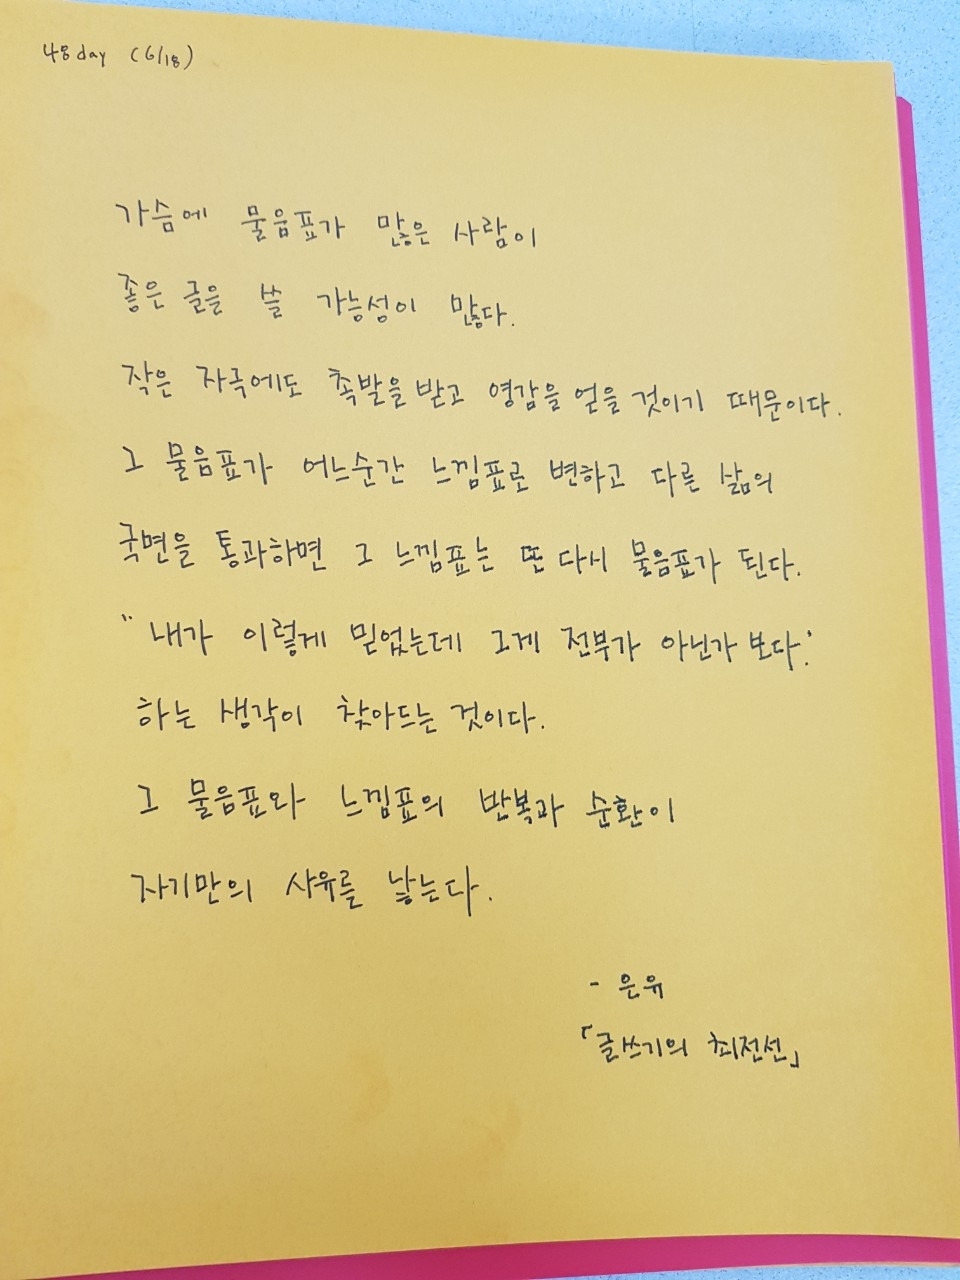 48day (6/18)
가슴에 물음표가 많은 사람이
좋은 글을 쓸 가능성이 많다.
작은 자극에도 촉발을 받고 영감을 얻을 것이기 때문이다.
그 물음표가 어느순간 느낌표로 변하고 다른 삶의
국면을 통과하면 그 느낌표는 또 다시 물음표가 된다.
"내가 이렇게 믿었는데 그게 전부가 아닌가 보다."
하는 생각이 찾아드는 것이다.
그 물음표와 느낌표의 반복과 순환이
자기만의 사유를 낳는다.
- 은유
「글쓰기의 최전선」